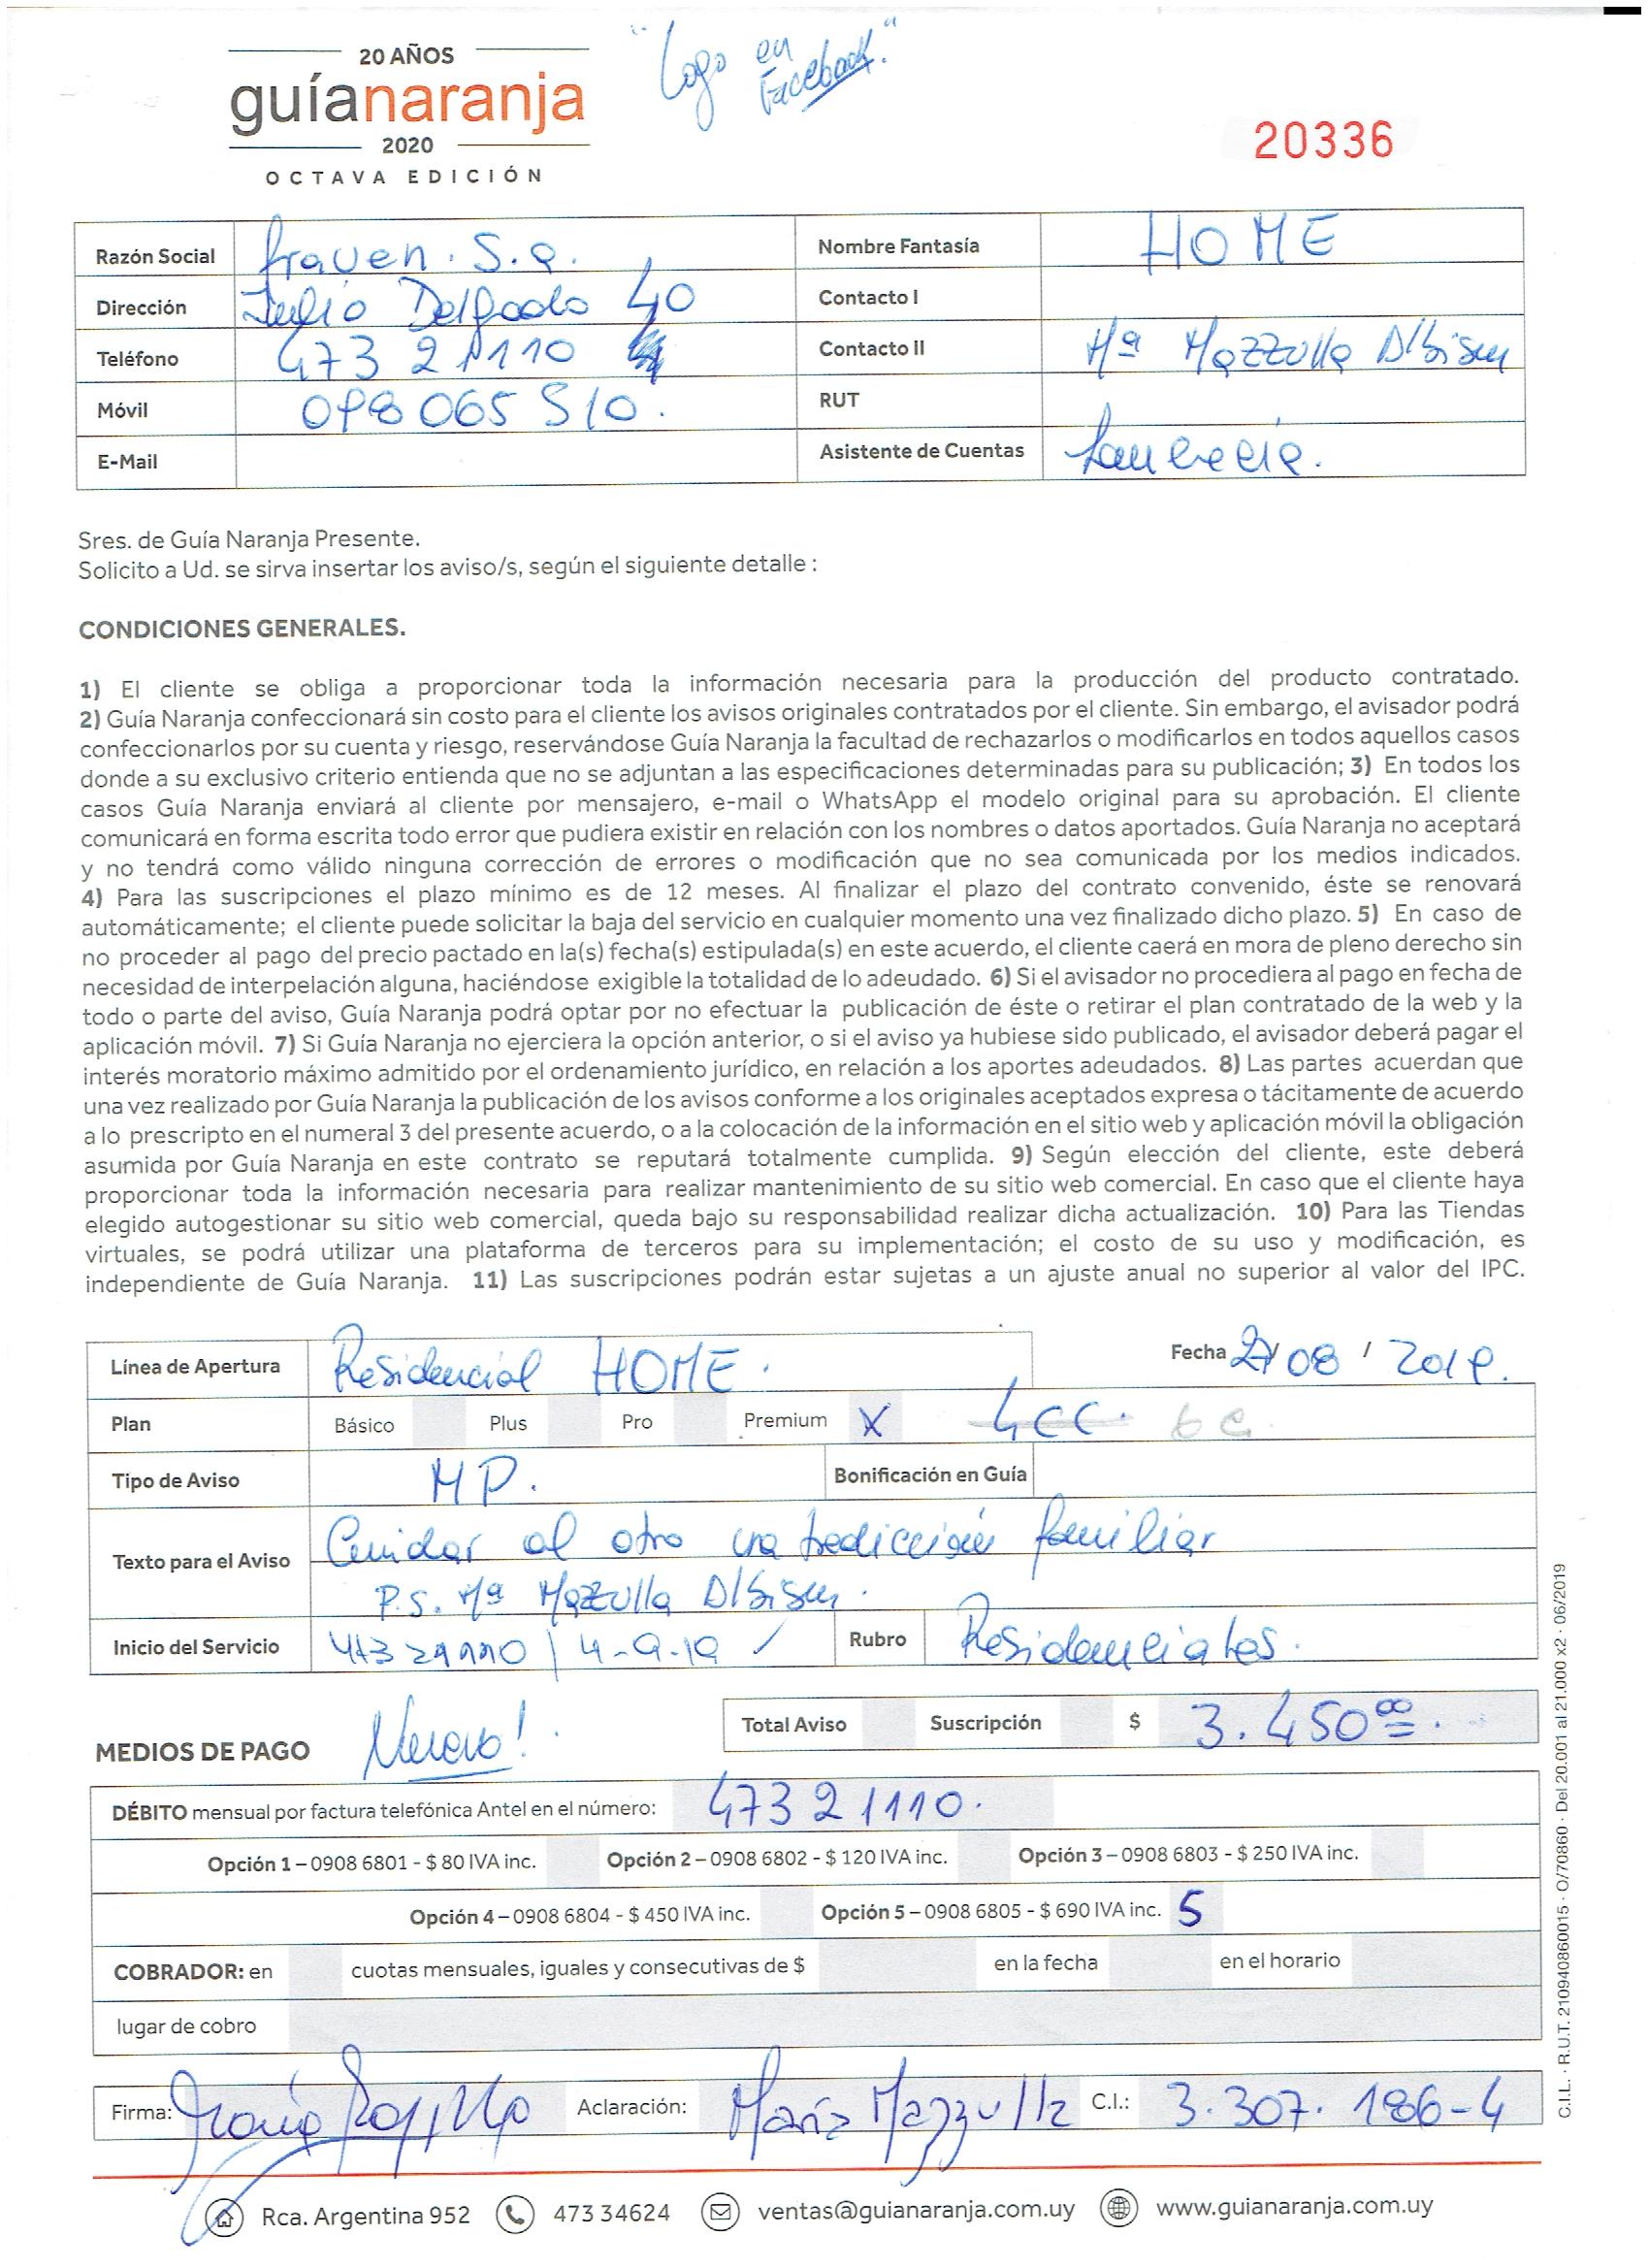 "Logo en Facebook."
20 AÑOS
guíanaranja
2020
OCTAVA EDICIÓN
20336
Razón Social fraven. S.a. Nombre Fantasía HOME
Dirección Julio Delgado 40 Contacto I
Teléfono 473 21110 Contacto II Mª Mazzulla Albisu
Móvil 098 065 510. RUT
E-Mail Asistente de Cuentas
Sres. de Guía Naranja Presente.
Solicito a Ud. se sirva insertar los aviso/s, según el siguiente detalle :
CONDICIONES GENERALES.
1) El cliente se obliga a proporcionar toda la información necesaria para la producción del producto contratado.
2) Guía Naranja confeccionará sin costo para el cliente los avisos originales contratados por el cliente. Sin embargo, el avisador podrá
confeccionarlos por su cuenta y riesgo, reservándose Guía Naranja la facultad de rechazarlos o modificarlos en todos aquellos casos
donde a su exclusivo criterio entienda que no se adjuntan a las especificaciones determinadas para su publicación; 3) En todos los
casos Guía Naranja enviará al cliente por mensajero, e-mail o WhatsApp el modelo original para su aprobación. El cliente
comunicará en forma escrita todo error que pudiera existir en relación con los nombres o datos aportados. Guía Naranja no aceptará
y no tendrá como válido ninguna corrección de errores o modificación que no sea comunicada por los medios indicados.
4) Para las suscripciones el plazo mínimo es de 12 meses. Al finalizar el plazo del contrato convenido, éste se renovará
automáticamente; el cliente puede solicitar la baja del servicio en cualquier momento una vez finalizado dicho plazo. 5) En caso de
no proceder al pago del precio pactado en la(s) fecha(s) estipulada(s) en este acuerdo, el cliente caerá en mora de pleno derecho sin
necesidad de interpelación alguna, haciéndose exigible la totalidad de lo adeudado. 6) Si el avisador no procediera al pago en fecha de
todo o parte del aviso, Guía Naranja podrá optar por no efectuar la publicación de éste o retirar el plan contratado de la web y la
aplicación móvil. 7) Si Guía Naranja no ejerciera la opción anterior, o si el aviso ya hubiese sido publicado, el avisador deberá pagar el
interés moratorio máximo admitido por el ordenamiento jurídico, en relación a los aportes adeudados. 8) Las partes acuerdan que
una vez realizado por Guía Naranja la publicación de los avisos conforme a los originales aceptados expresa o tácitamente de acuerdo
a lo prescripto en el numeral 3 del presente acuerdo, o a la colocación de la información en el sitio web y aplicación móvil la obligación
asumida por Guía Naranja en este contrato se reputará totalmente cumplida. 9) Según elección del cliente, este deberá
proporcionar toda la información necesaria para realizar mantenimiento de su sitio web comercial. En caso que el cliente haya
elegido autogestionar su sitio web comercial, queda bajo su responsabilidad realizar dicha actualización. 10) Para las Tiendas
virtuales, se podrá utilizar una plataforma de terceros para su implementación; el costo de su uso y modificación, es
independiente de Guía Naranja. 11) Las suscripciones podrán estar sujetas a un ajuste anual no superior al valor del IPC.
Línea de Apertura Residencial HOME. Fecha 27/08 / 2019.
Plan Básico Plus Pro Premium X 4CC. 6C
Tipo de Aviso MP. Bonificación en Guía
Texto para el Aviso Cuidar al otro una tradicción familiar
P.S. Mª Mazzulla Albisu.
Inicio del Servicio 473 21110 | 4-9-19 / Rubro Residenciales.
Total Aviso Suscripción $ 3.450⁰⁰.
MEDIOS DE PAGO Nuevo!
DÉBITO mensual por factura telefónica Antel en el número: 473 21110.
Opción 1 – 0908 6801 - $ 80 IVA inc. Opción 2 – 0908 6802 - $ 120 IVA inc. Opción 3 – 0908 6803 - $ 250 IVA inc.
Opción 4 – 0908 6804 - $ 450 IVA inc. Opción 5 – 0908 6805 - $ 690 IVA inc. 5
COBRADOR: en cuotas mensuales, iguales y consecutivas de $ en la fecha en el horario
lugar de cobro
Firma: Aclaración: María Mazzulla C.I.: 3.307.186-4
Rca. Argentina 952 473 34624 ventas@guianaranja.com.uy www.guianaranja.com.uy
C.I.L. · R.U.T. 210940860015 · O/70860 · Del 20.001 al 21.000 x2 · 06/2019